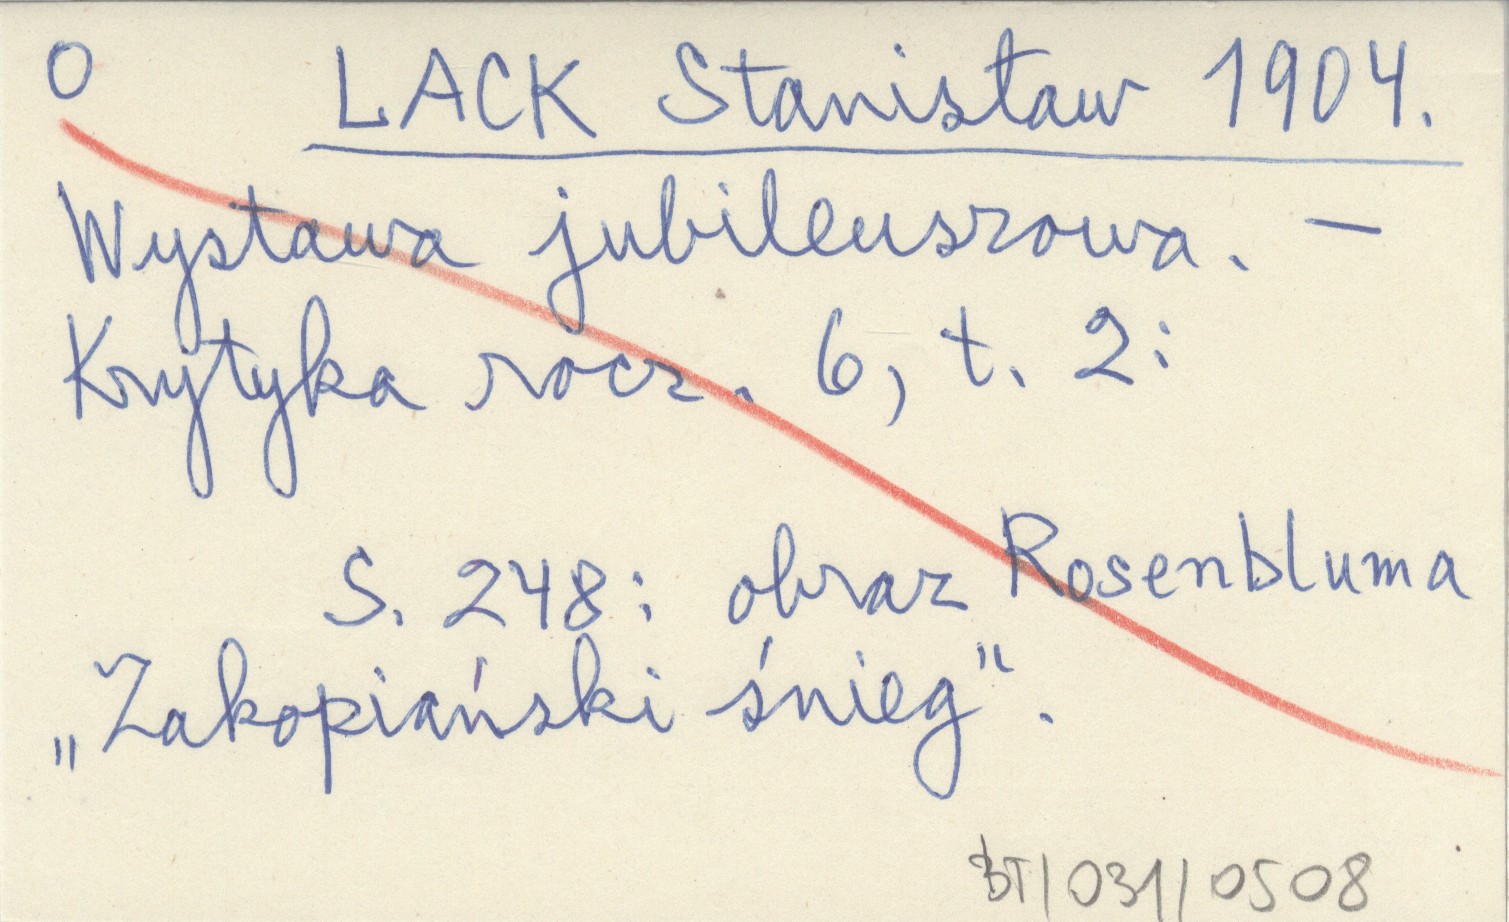 O LACK Stanisław 1904.
Wystawa jubileuszowa. –
Krytyka rocz. 6, t. 2:
S. 248: obraz Rosenbluma
„Zakopiański śnieg".
BT/031/0508